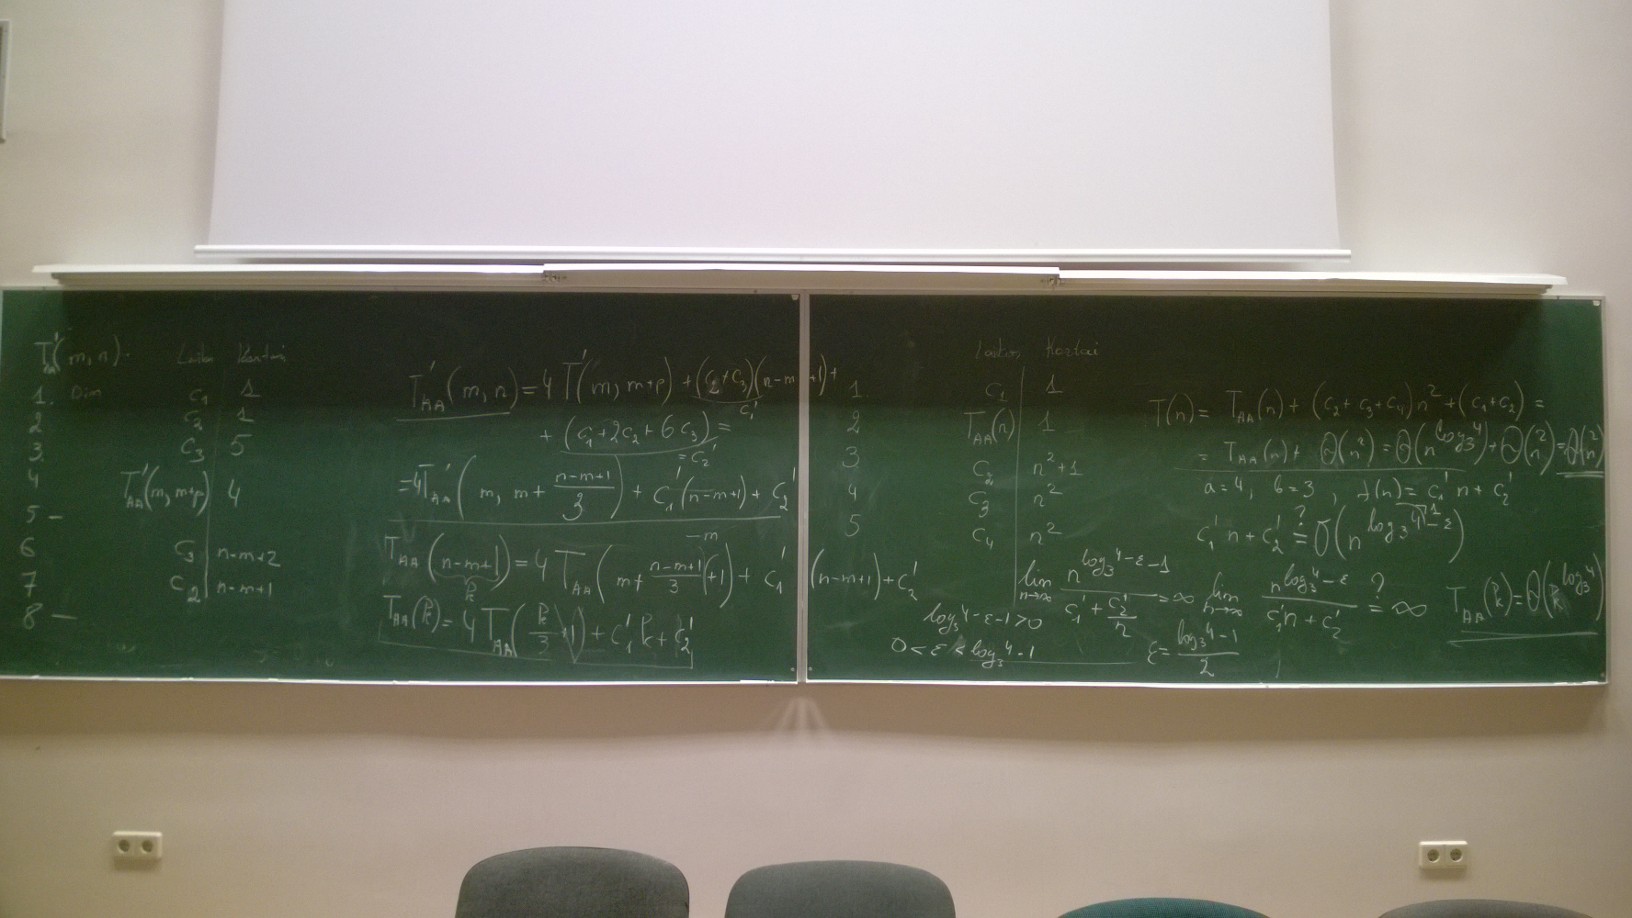 T'AA(m, n).
Laikas Kartai
1. c₁ 1
2 c₂ 1
3. c₃ 5
4 T'AA(m, m+p) 4
5 –
6 c₃ n-m+2
7 c₂ n-m+1
8 –
T'AA(m, n) = 4 T'(m, m+p) + (c₂+c₃)(n-m+1) +
c₁'
+ (c₁+2c₂+6c₃) =
= c₂'
= 4T'AA(m, m + (n-m+1)/3) + c₁'(n-m+1) + c₂'
-m
TAA(n-m+1) = 4 TAA(m + (n-m+1)/3 + 1) + c₁'(n-m+1) + c₂'
k
TAA(k) = 4 TAA(k/3 + 1) + c₁'k + c₂'
Laikas Kartai
1. c₁ 1
2 TAA(n) 1
3 c₂ n²+1
4 c₃ n²
5 c₄ n²
T(n) = TAA(n) + (c₂+c₃+c₄)n² + (c₁+c₂) =
= TAA(n) + Θ(n²) = Θ(n^(log₃4)) + Θ(n²) = Θ(n²)
a=4, b=3, f(n) = c₁'n + c₂'
1
c₁'n + c₂' ?= O(n^(log₃4-ε))
lim n→∞ n^(log₃4-ε-1) / (c₁' + c₂'/n) = ∞ lim n→∞ n^(log₃4-ε) / (c₁'n + c₂') ?= ∞
TAA(k) = Θ(k^(log₃4))
log₃4-ε-1>0
0<ε<log₃4-1
ε = (log₃4-1)/2